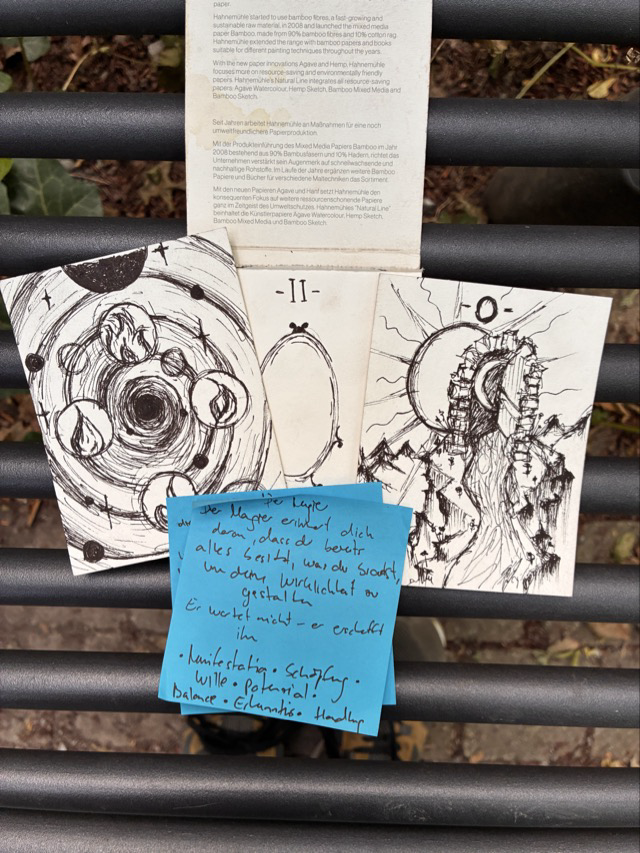 paper.
Hahnemühle started to use bamboo fibres, a fast-growing and
sustainable raw material, in 2008 and launched the mixed media
paper Bamboo, made from 90% bamboo fibres and 10% cotton rag.
Hahnemühle extended the range with bamboo papers and books
suitable for different painting techniques throughout the years.
With the new paper innovations Agave and Hemp, Hahnemühle
focuses more on resource-saving and environmentally friendly
papers. Hahnemühle's Natural Line integrates all resource-saving
papers: Agave Watercolour, Hemp Sketch, Bamboo Mixed Media and
Bamboo Sketch.
Seit Jahren arbeitet Hahnemühle an Maßnahmen für eine noch
umweltfreundlichere Papierproduktion.
Mit der Produkteinführung des Mixed Media Papiers Bamboo im Jahr
2008 bestehend aus 90% Bambusfasern und 10% Hadern, richtet das
Unternehmen verstärkt sein Augenmerk auf schnellwachsende und
nachhaltige Rohstoffe. Im Laufe der Jahre ergänzen weitere Bamboo
Papiere und Bücher für verschiedene Maltechniken das Sortiment.
Mit den neuen Papieren Agave und Hanf setzt Hahnemühle den
konsequenten Fokus auf weitere ressourcenschonende Papiere
ganz im Zeitgeist des Umweltschutzes. Hahnemühles "Natural Line"
beinhaltet die Künstlerpapiere Agave Watercolour, Hemp Sketch,
Bamboo Mixed Media und Bamboo Sketch.
-II-
-O-
Der Magier
Der Magier erinnert dich
daran, dass du bereits
alles besitzt, was du brauchst,
um deine Wirklichkeit zu
gestalten
Er wartet nicht – er erschafft
ihn
· Manifestation · Schöpfung ·
Wille · Potenzial ·
Balance · Erkenntnis · Handlung